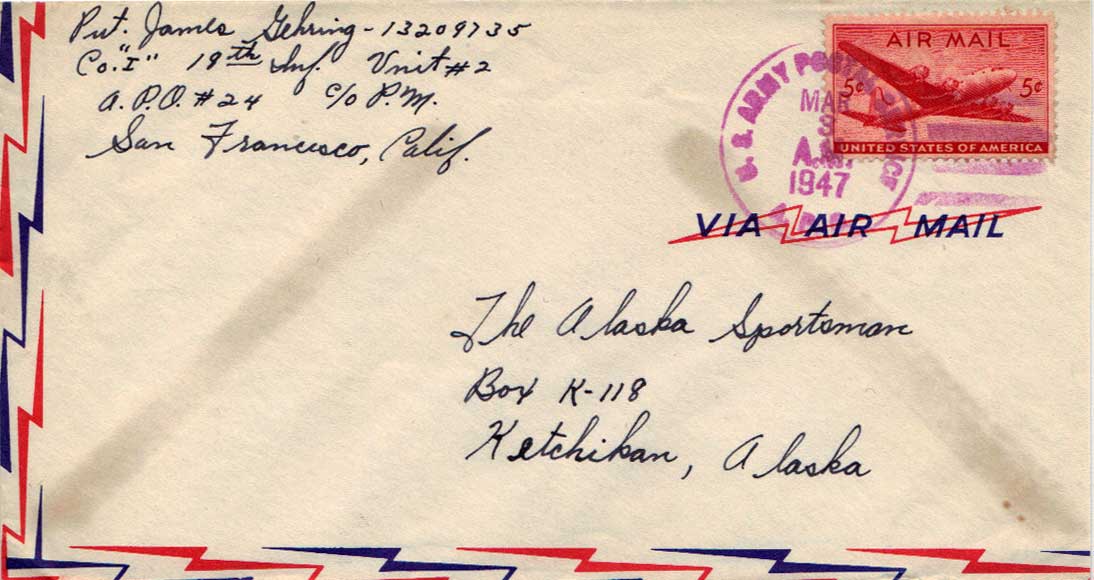 Pvt. James Gehring - 13209735
Co. "I" 19th Inf. Unit #2
A.P.O. #24 c/o P.M.
San Francisco, Calif.
AIR MAIL
5¢ 5¢
UNITED STATES OF AMERICA
U. S. ARMY POSTAL SERVICE
MAR
3
A.M.
1947
VIA AIR MAIL
The Alaska Sportsman
Box K-118
Ketchikan, Alaska